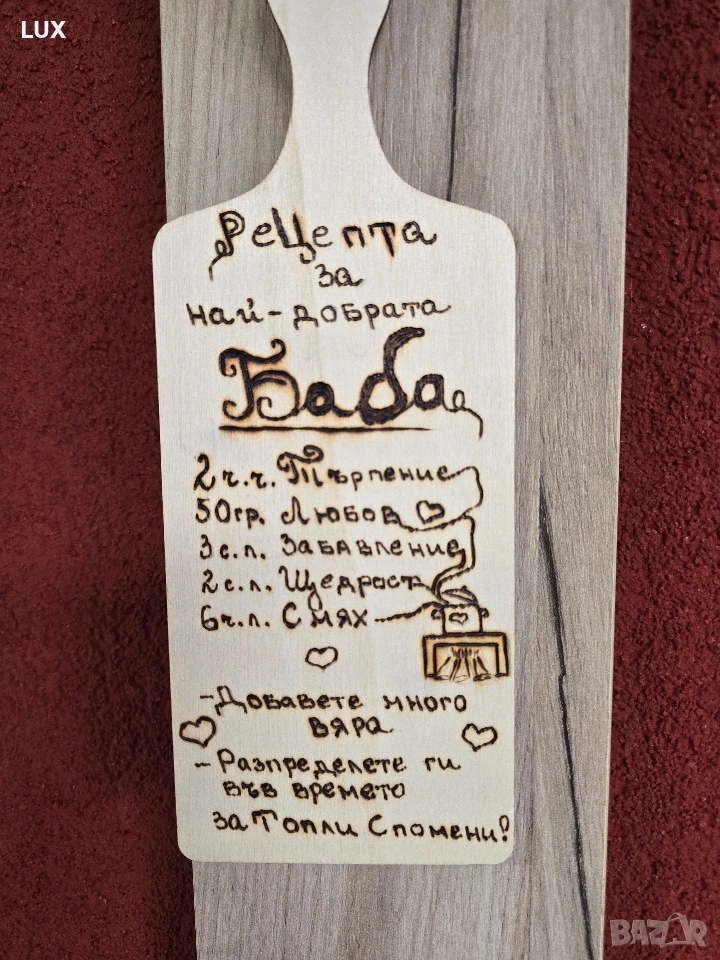 LUX
Рецепта
за
най-добрата
Баба
2 ч.ч. Търпение
50гр. Любов
3 с.л. Забавление
2 с.л. Щедрост
6ч.л. Смях
-Добавете много
вяра
- Разпределете ги
във времето
за Топли Спомени!
BAZAR